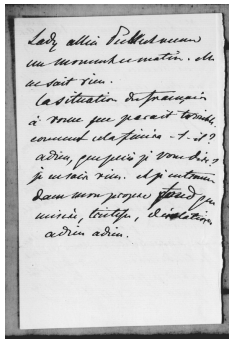 Lady Allen
un moment ce matin. Elle
ne sait rien.
La situation du français
à Rome me parait terrible
comment cela finira-t-il?
adieu, que puis je vous dire?
je ne sais rien. et je
dans mon propre fond que
misère, tristesse, désolation
adieu adieu.